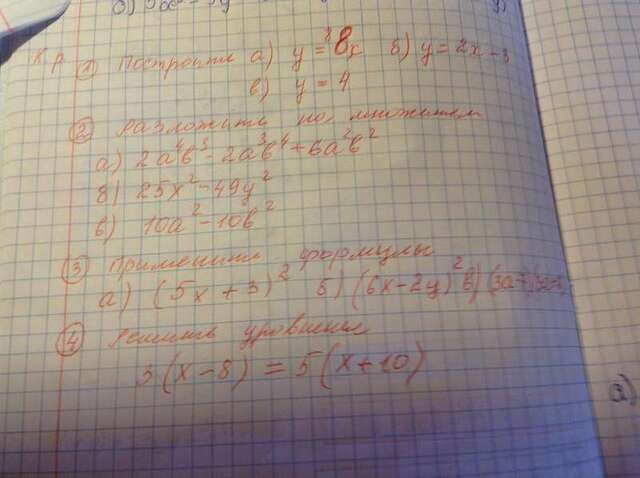 К.р. ① Построить а) y = 8x б) y = 2x - 3
в) y = 4
② Разложить на множители
а) 2a⁴b³ - 2a³b⁴ + 6a²b²
б) 25x² - 49y²
в) 10a² - 10b²
③ Применить формулы
а) (5x + 3)² б) (6x - 2y)² в)
④ Решить уровнение
3(x - 8) = 5(x + 10)
а)